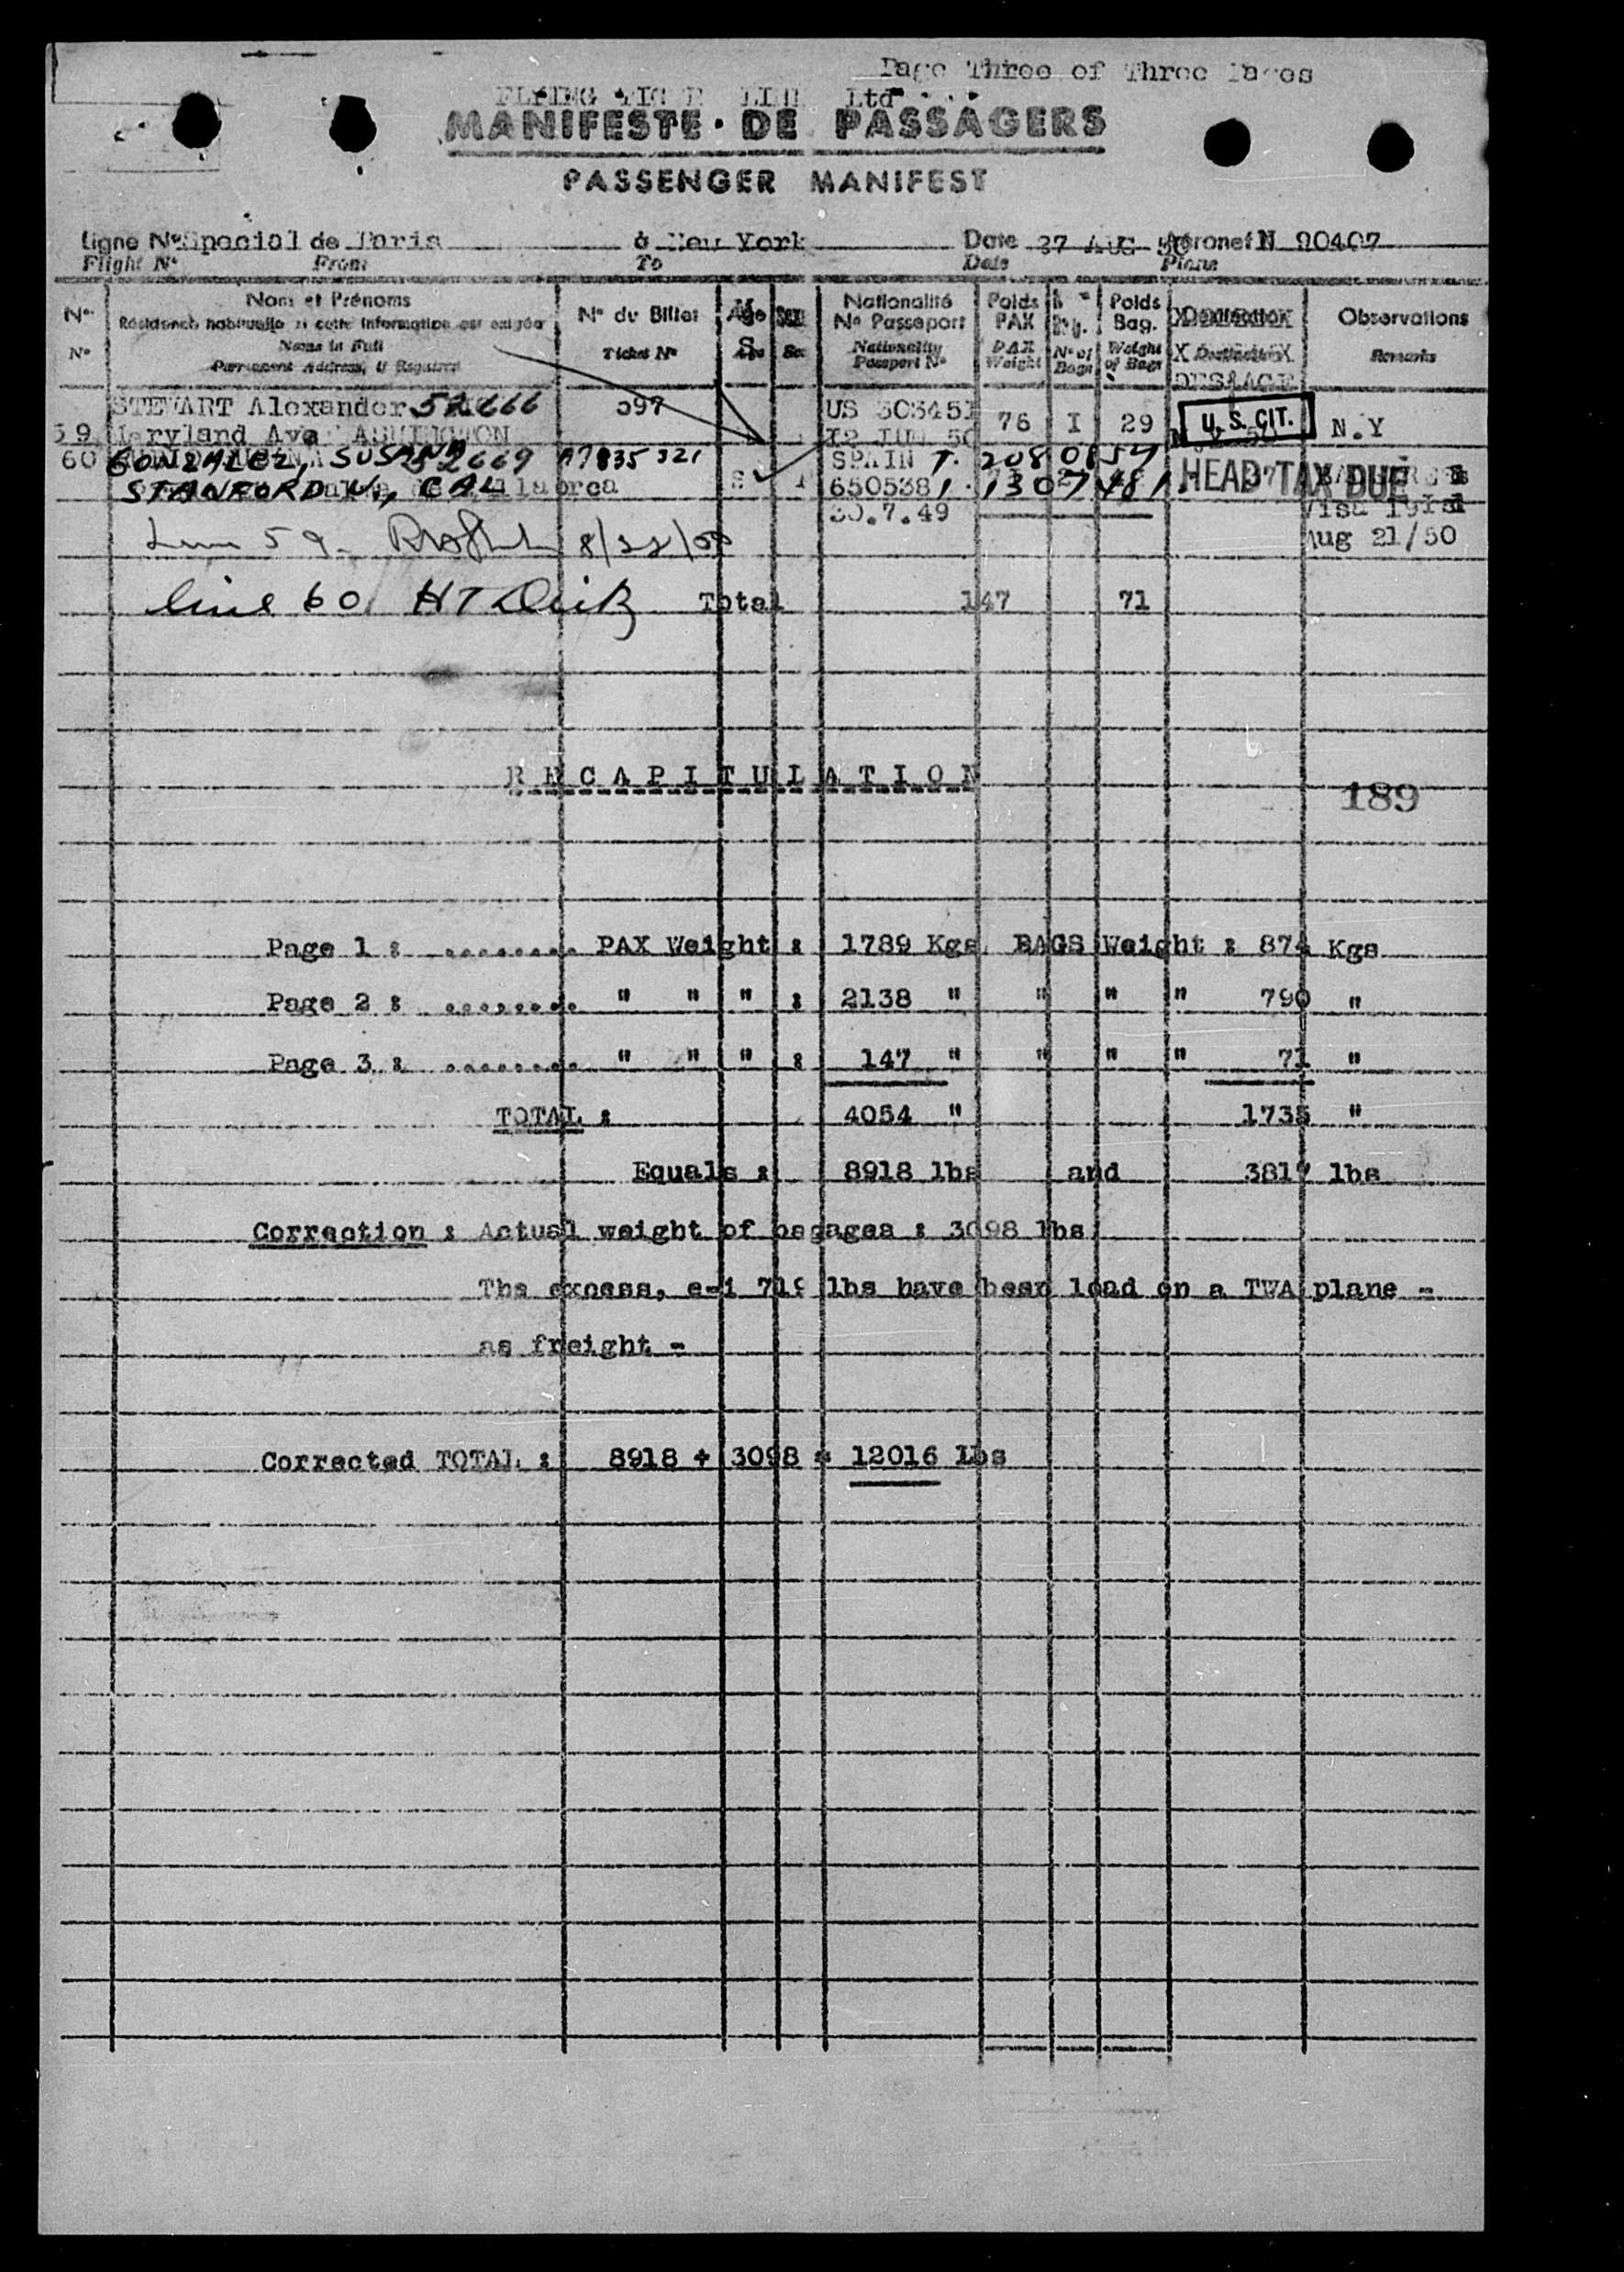 Page Three of Three Pages
FLYING TIGER LINE Ltd
MANIFESTE DE PASSAGERS
PASSENGER MANIFEST
Ligne No Special de Paris à New York Date 27 AUG 50 Aéronef N 90407
Flight No From To Date Plane
No Nom et Prénoms No du Billet Age Sex Nationalité Poids Poids Destination Observations
Résidence habituelle si cette information est exigée No Passeport PAX Bag.
No Name in Full Ticket No Age Sex Nationality PAX No of Weight Destination Remarks
Permanent Address, if Required Passport No Weight Bags of Bags
STEWART Alexander 52666 597 US 303451 76 I 29 U.S. CIT. N.Y
59 Maryland Ave WASHINGTON 12 JUN 50
60 GONZALEZ, SUSANA 52669 A7835321 SPAIN T. 2080854
STANFORD U, CAL 650538 1307481 HEAD TAX DUE
30.7.49 Visa
Aug 21/50
Line 59 8/28/50
line 60 HT Total 147 71
RECAPITULATION
189
Page 1 : ........ PAX Weight : 1789 Kgs BAGS Weight : 874 Kgs
Page 2 : ........ " " " : 2138 " " " " 790 "
Page 3 : ........ " " " : 147 " " " " 71 "
TOTAL : 4054 " 1735 "
Equals : 8918 lbs and 3817 lbs
Correction : Actual weight of bagages : 3098 lbs
The excess, e-i 719 lbs have been load on a TWA plane -
as freight -
Corrected TOTAL : 8918 + 3098 = 12016 Lbs